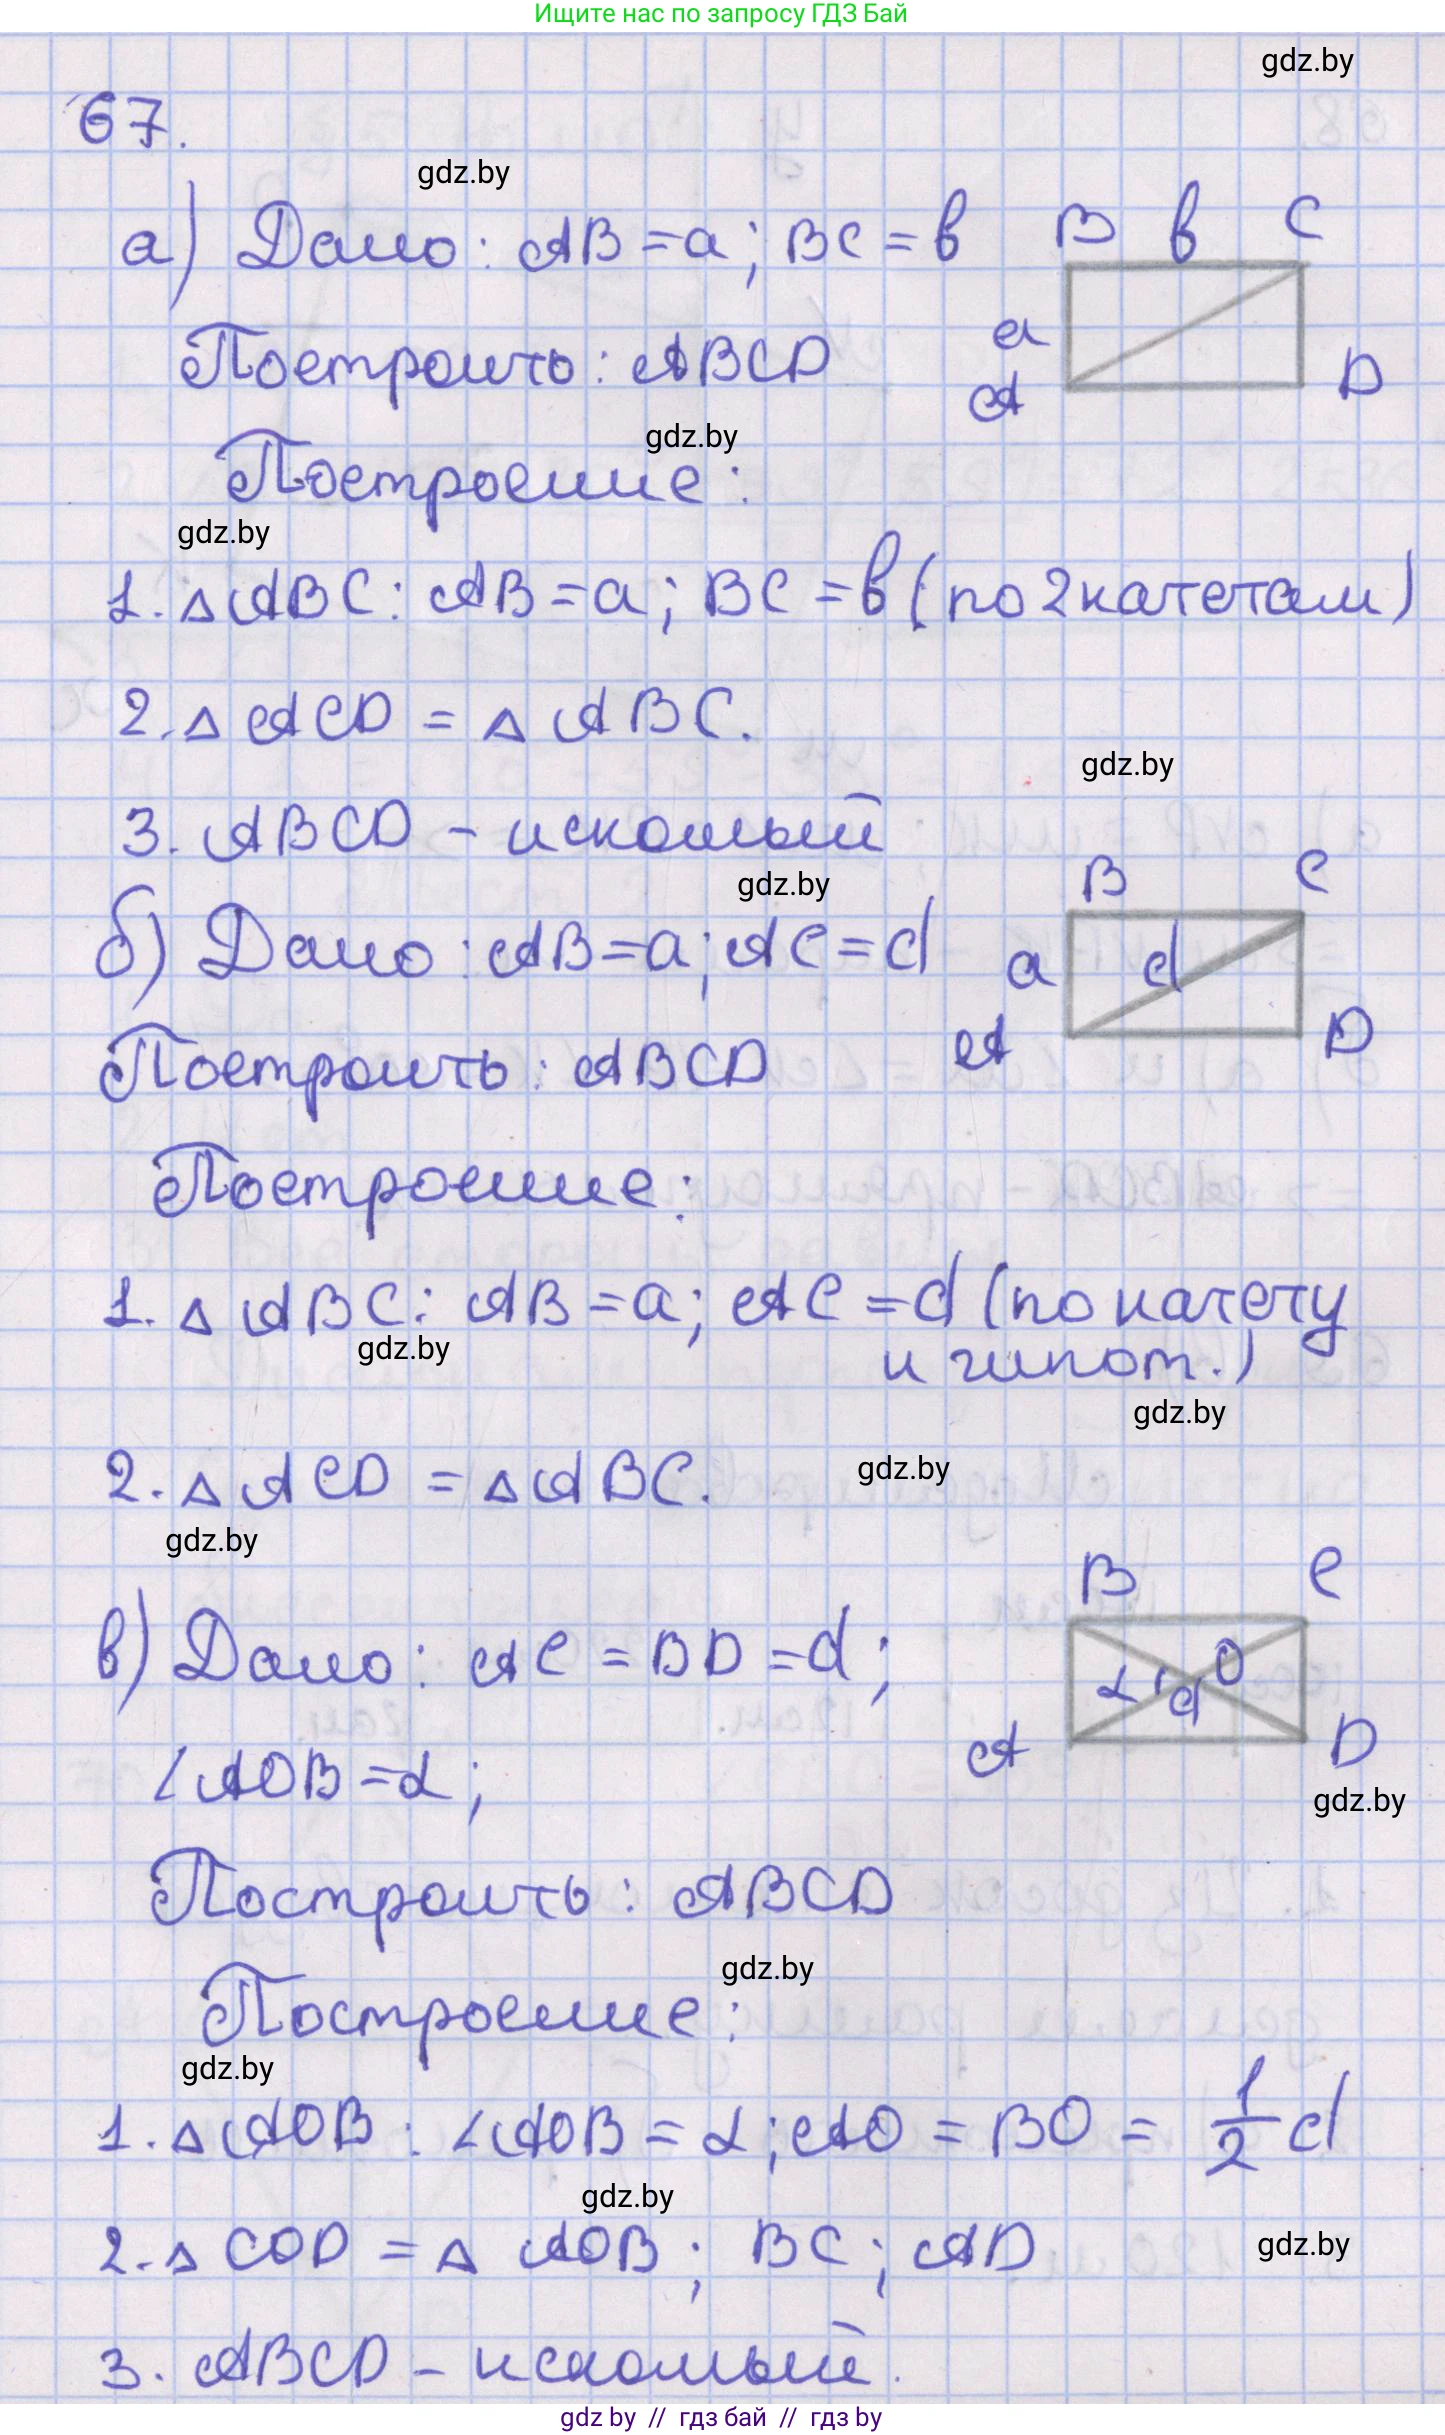 Ищите нас по запросу ГДЗ Бай
gdz.by
67.
gdz.by
а) Дано: AB = a; BC = b
B b C
a
Построить: ABCD
A D
gdz.by
Построение:
gdz.by
1. △ABC: AB = a; BC = b (по 2 катетам)
2. △ACD = △ABC.
gdz.by
3. ABCD - искомый
gdz.by
B C
б) Дано: AB = a; AC = d
a d
A D
Построить: ABCD
Построение:
1. △ABC: AB = a; AC = d (по катету
gdz.by
и гипот.)
gdz.by
2. △ACD = △ABC.
gdz.by
gdz.by
B C
в) Дано: AC = BD = d;
α d O
A D
∠AOB = α;
gdz.by
Построить: ABCD
gdz.by
Построение:
gdz.by
1. △AOB: ∠AOB = α; AO = BO = 1/2 d
gdz.by
2. △COD = △AOB; BC; AD
gdz.by
3. ABCD - искомый.
gdz by // гдз бай // гдз by